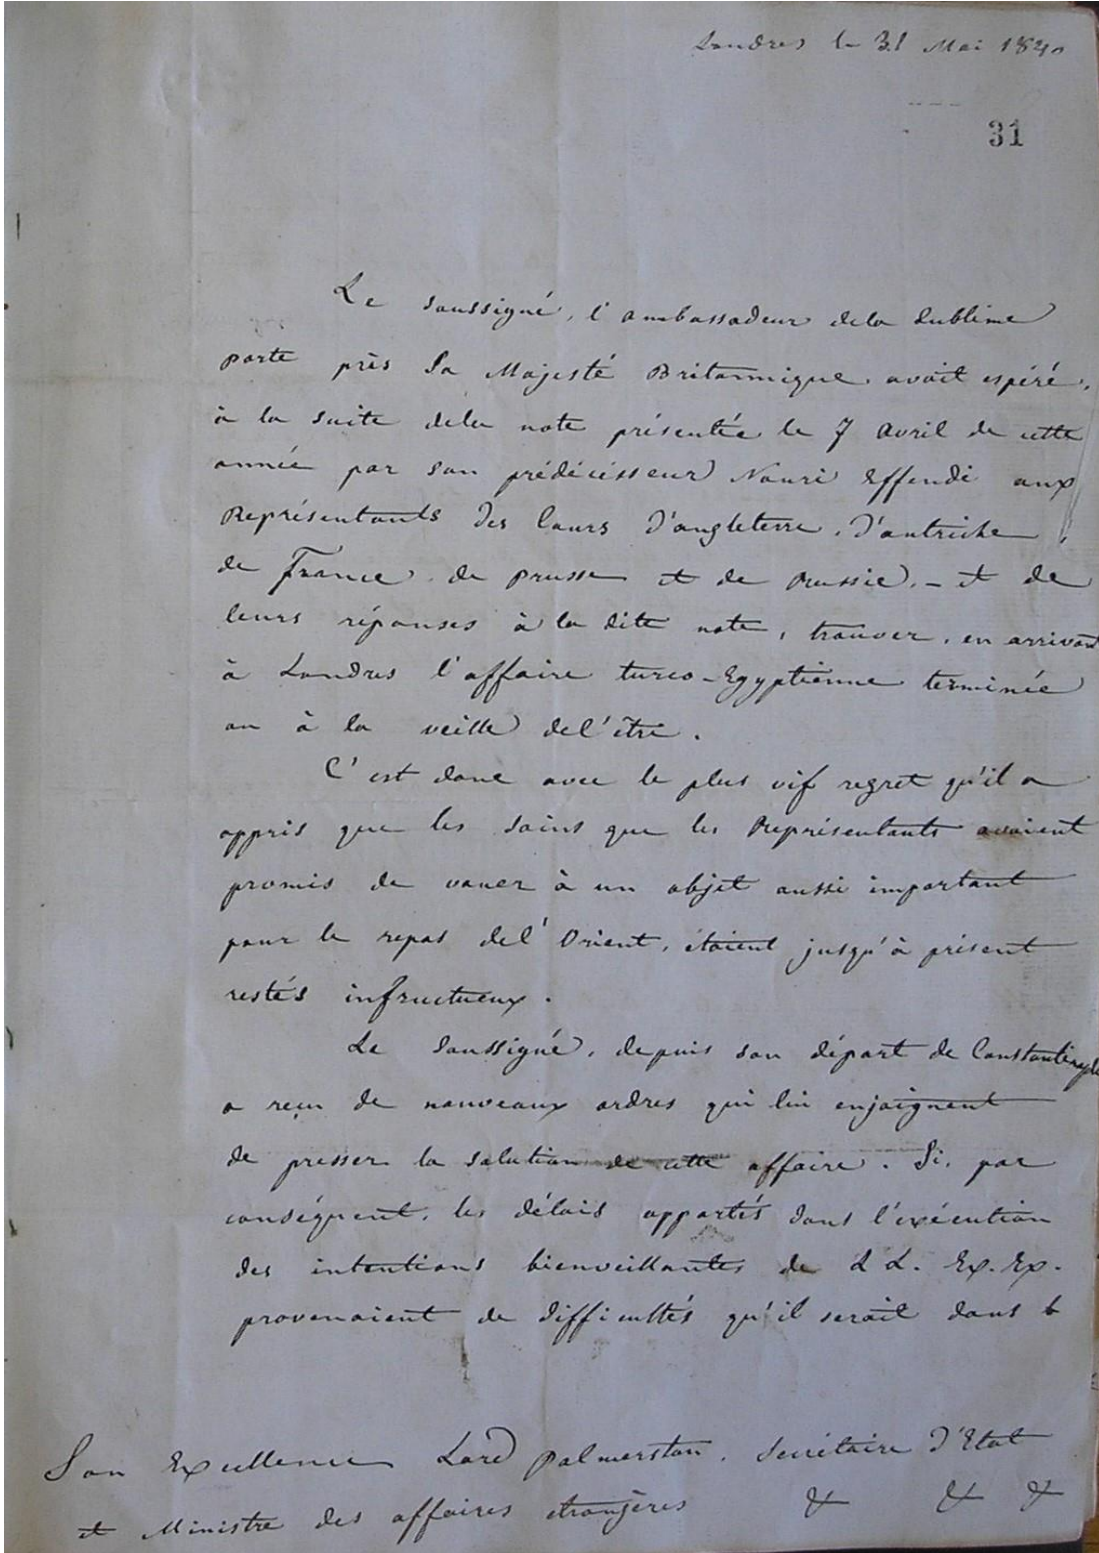 Londres le 31 Mai 1840
31
Le soussigné, l'ambassadeur dela Sublime
porte près Sa Majesté Britannique avait espéré,
à la suite dela note présentée le 7 avril de cette
année par son prédécesseur Nouri Effendi aux
Représentants des Cours d'angleterre, d'autriche,
de France, de prusse et de Russie, - et de
leurs réponses à la dite note, trouver, en arrivant
à Londres l'affaire turco-Egyptienne terminée
ou à la veille del'être.
C'est donc avec le plus vif regret qu'il a
appris que les soins que les Représentants avaient
promis de vouer à un objet aussi important
pour le repos del'Orient, étaient jusqu'à présent
restés infructueux.
Le Soussigné, depuis son départ de Constantinople
a reçu de nouveaux ordres qui lui enjoignent
de presser la solution de cette affaire. Si, par
conséquent, les délais apportés dans l'exécution
des intentions bienveillantes de LL. Ex. Ex.
provenaient de difficultés qu'il serait dans le
Son Excellence Lord palmerston, Secrétaire d'Etat
et Ministre des affaires etrangères & & &